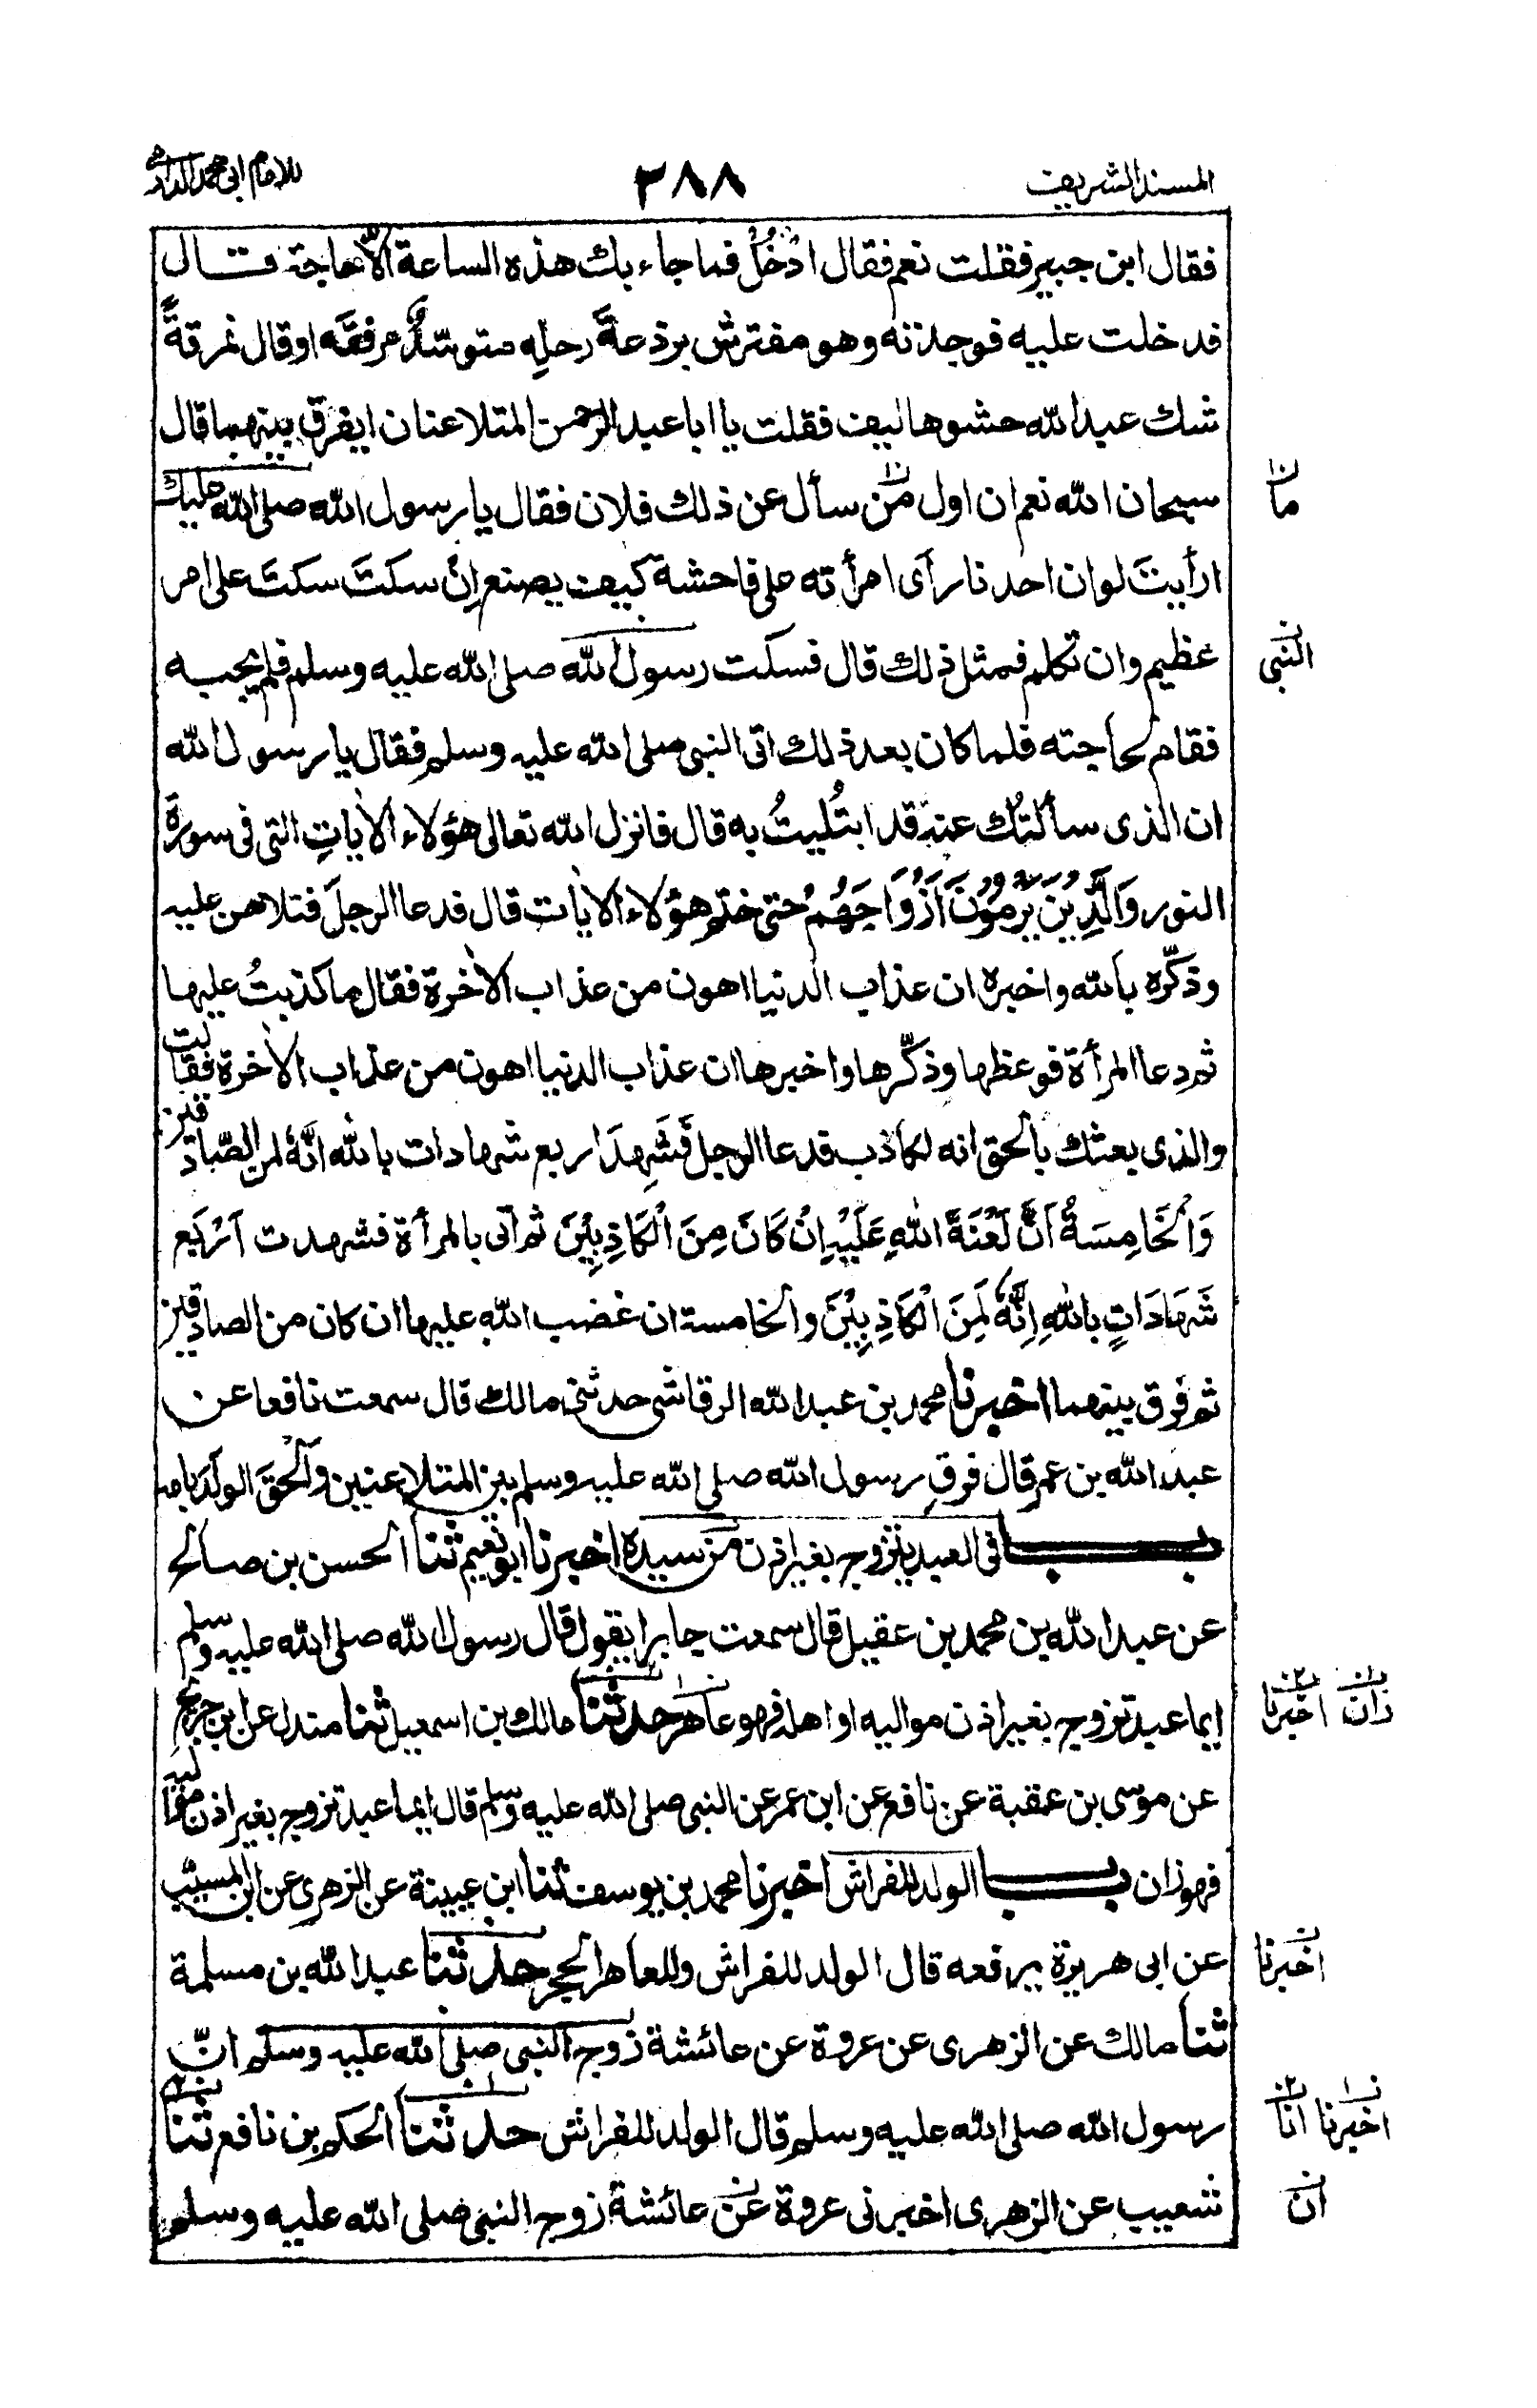 المسند الشريف
٢٨٨
للامام ابى محمد الدارمى
فقال ابن جبير فقلت نعم فقال ادْخُلْ فما جاء بك هذه الساعة الَّا حاجة قال
فدخلت عليه فوجدته وهو مفترش برذعةَ رحلِه متوسّدٌ مرفقَه او قال نمرقةً
شك عبد الله حشوها ليف فقلت يا ابا عبد الرحمن المتلاعنان ايفرق بينهما قال
سبحان الله نعم ان اول من سأل عن ذلك فلان فقال يا رسول الله صلى الله عليك
ارأيتَ لو ان احدنا رأى امرأته على فاحشة كيف يصنع اِنْ سكتَ سكتَ على امر
عظيم وان تكلم فمثل ذلك قال فسكت رسول الله صلى الله عليه وسلم فلم يجبه
فقام لحاجته فلما كان بعد ذلك اتى النبى صلى الله عليه وسلم فقال يا رسول الله
ان الذى سألتُك عنه قد ابتُليتُ به قال فانزل الله تعالى هؤلاء الاٰياتِ التى فى سورة
النور وَالَّذِيْنَ يَرْمُوْنَ اَزْوَاجَهُمْ حتى ختم هؤلاء الاٰيات قال فدعا الرجلَ فتلاهن عليه
وذكّره بالله واخبره ان عذاب الدنيا اهون من عذاب الاٰخرة فقال ما كذبتُ عليها
ثم دعا المرأة فوعظها وذكّرها واخبرها ان عذاب الدنيا اهون من عذاب الاٰخرة فقالت
والذى بعثك بالحق انه لكاذب فدعا الرجل فَشَهِدَ اربع شهادات بالله اِنَّهٗ لمن الصّادقين
وَالْخَامِسَةُ اَنَّ لَعْنَةَ اللهِ عَلَيْهِ اِنْ كَانَ مِنَ الْكَاذِبِيْنَ ثم اتى بالمرأة فشهدت اَرْبَعَ
شَهَادَاتٍ بِاللهِ اِنَّهٗ لَمِنَ الْكَاذِبِيْنَ والخامسة ان غضب الله عليها ان كان من الصادقين
ثم فرق بينهما اخبرنا محمد بن عبد الله الرقاشى حدثنى مالك قال سمعت نافعا عن
عبد الله بن عمر قال فرق رسول الله صلى الله عليه وسلم بين المتلاعنين وألحقَ الولدَ بامه
باب فى العبد يتزوج بغير اذن من سيده اخبرنا ابو نعيم ثنا الحسن بن صالح
عن عبد الله بن محمد بن عقيل قال سمعت جابرا يقول قال رسول الله صلى الله عليه وسلم
ايما عبد تزوج بغير اذن مواليه او اهله فهو عاهر حدثنا مالك بن اسمعيل ثنا مندل عن ابن جريج
عن موسى بن عقبة عن نافع عن ابن عمر عن النبى صلى الله عليه وسلم قال ايما عبد تزوج بغير اذن مواليه
فهو زان باب الولد للفراش اخبرنا محمد بن يوسف ثنا ابن عيينة عن الزهرى عن ابن المسيب
عن ابى هريرة يرفعه قال الولد للفراش وللعاهر الحجر حدثنا عبد الله بن مسلمة
ثنا مالك عن الزهرى عن عروة عن عائشة زوج النبى صلى الله عليه وسلم انّ
رسول الله صلى الله عليه وسلم قال الولد للفراش حدثنا الحكم بن نافع ثنا
شعيب عن الزهرى اخبرنى عروة عن عائشة زوج النبى صلى الله عليه وسلم
ما
النبى
زان اخبرنا
اخبرنا
اخبرنا انا
ان